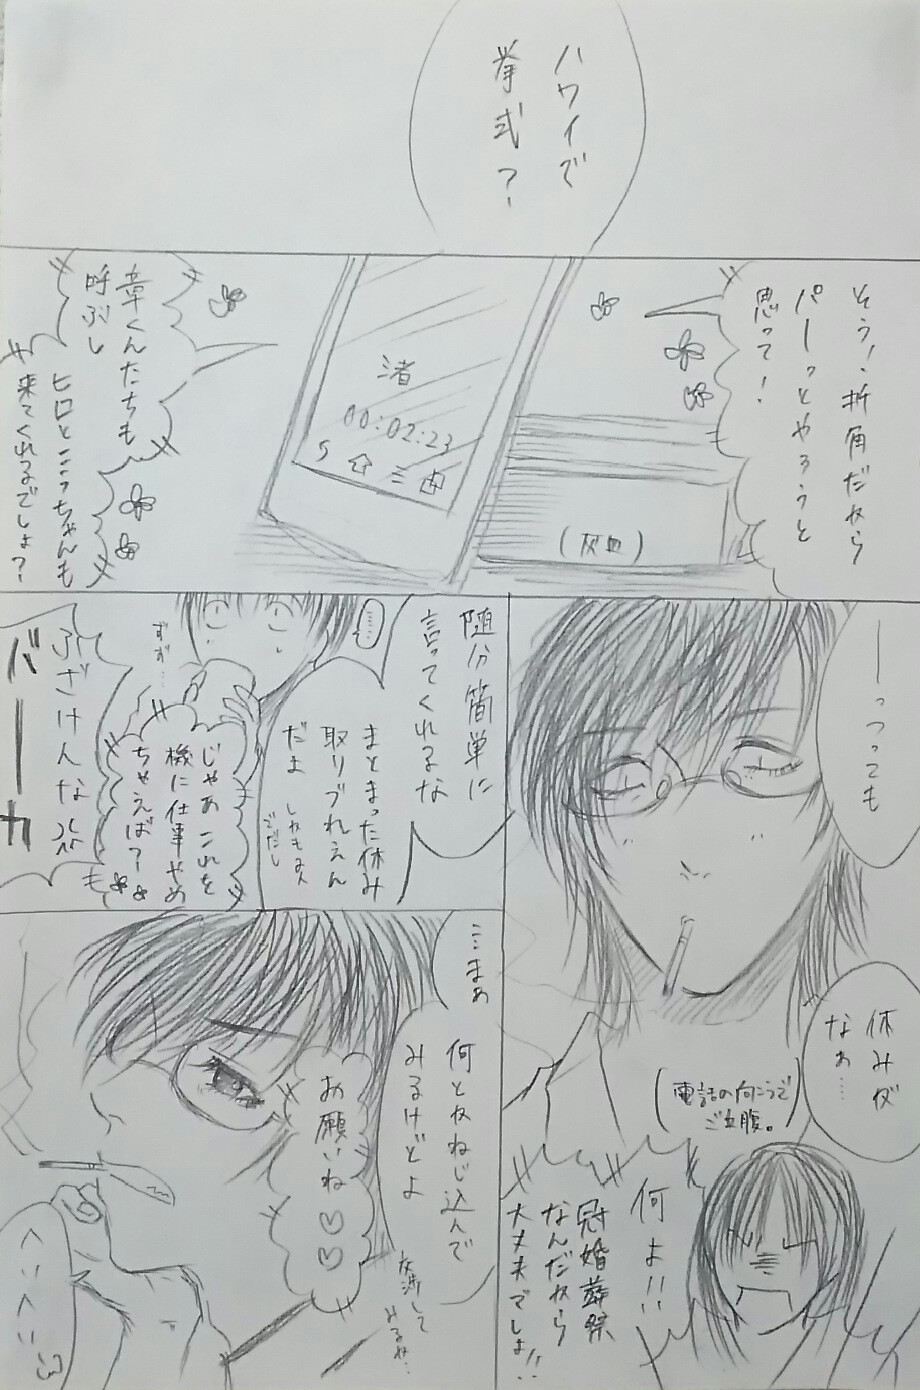 ハワイで
挙式？
そう！折角だから
パーっとやろうと
思って！
渚
00:02:23
(灰皿)
章くんたちも
呼ぶし
ヒロとこっちゃんも
来てくれるでしょ？
ーっつっても
休みが
なぁ…
(電話の向こうで
ご立腹。)
何よ!!
冠婚葬祭
なんだから
大丈夫でしょ!!
随分簡単に
言ってくれるな
まとまった休み
取りづれぇん
だよ
しかも2人
でだし
……
ずず…
じゃあこれを
機に仕事やめ
ちゃえば？
ふざけんな
バーーカ
…まぁ
何とかねじ込んで
みるけどよ
交渉して
みるか…
お願いね♡♡
へいへい